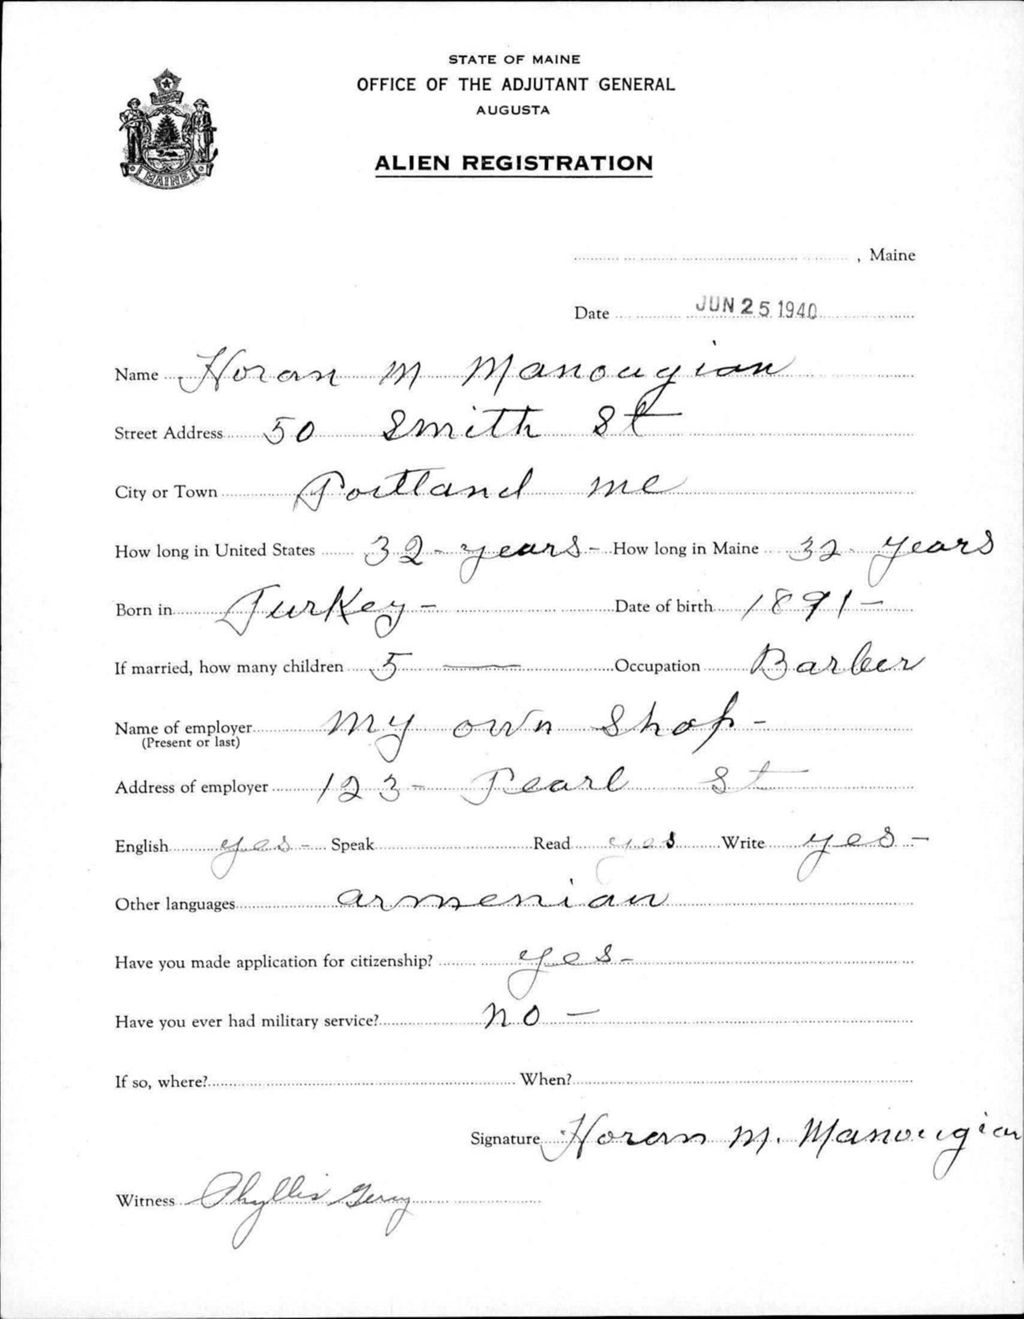 STATE OF MAINE
OFFICE OF THE ADJUTANT GENERAL
AUGUSTA
ALIEN REGISTRATION
MAINE
, Maine
Date JUN 25 1940
Name Horan M Manougian
Street Address 50 Smith St
City or Town Portland Me
How long in United States 32 - years - How long in Maine 32 - years
Born in Turkey - Date of birth 1891 -
If married, how many children 5 — Occupation Barber
Name of employer My own Shop -
(Present or last)
Address of employer 123 - Pearl St
English yes - Speak Read yes Write yes -
Other languages Armenian
Have you made application for citizenship? yes -
Have you ever had military service? no -
If so, where? When?
Signature Horan M. Manougian
Witness Phyllis